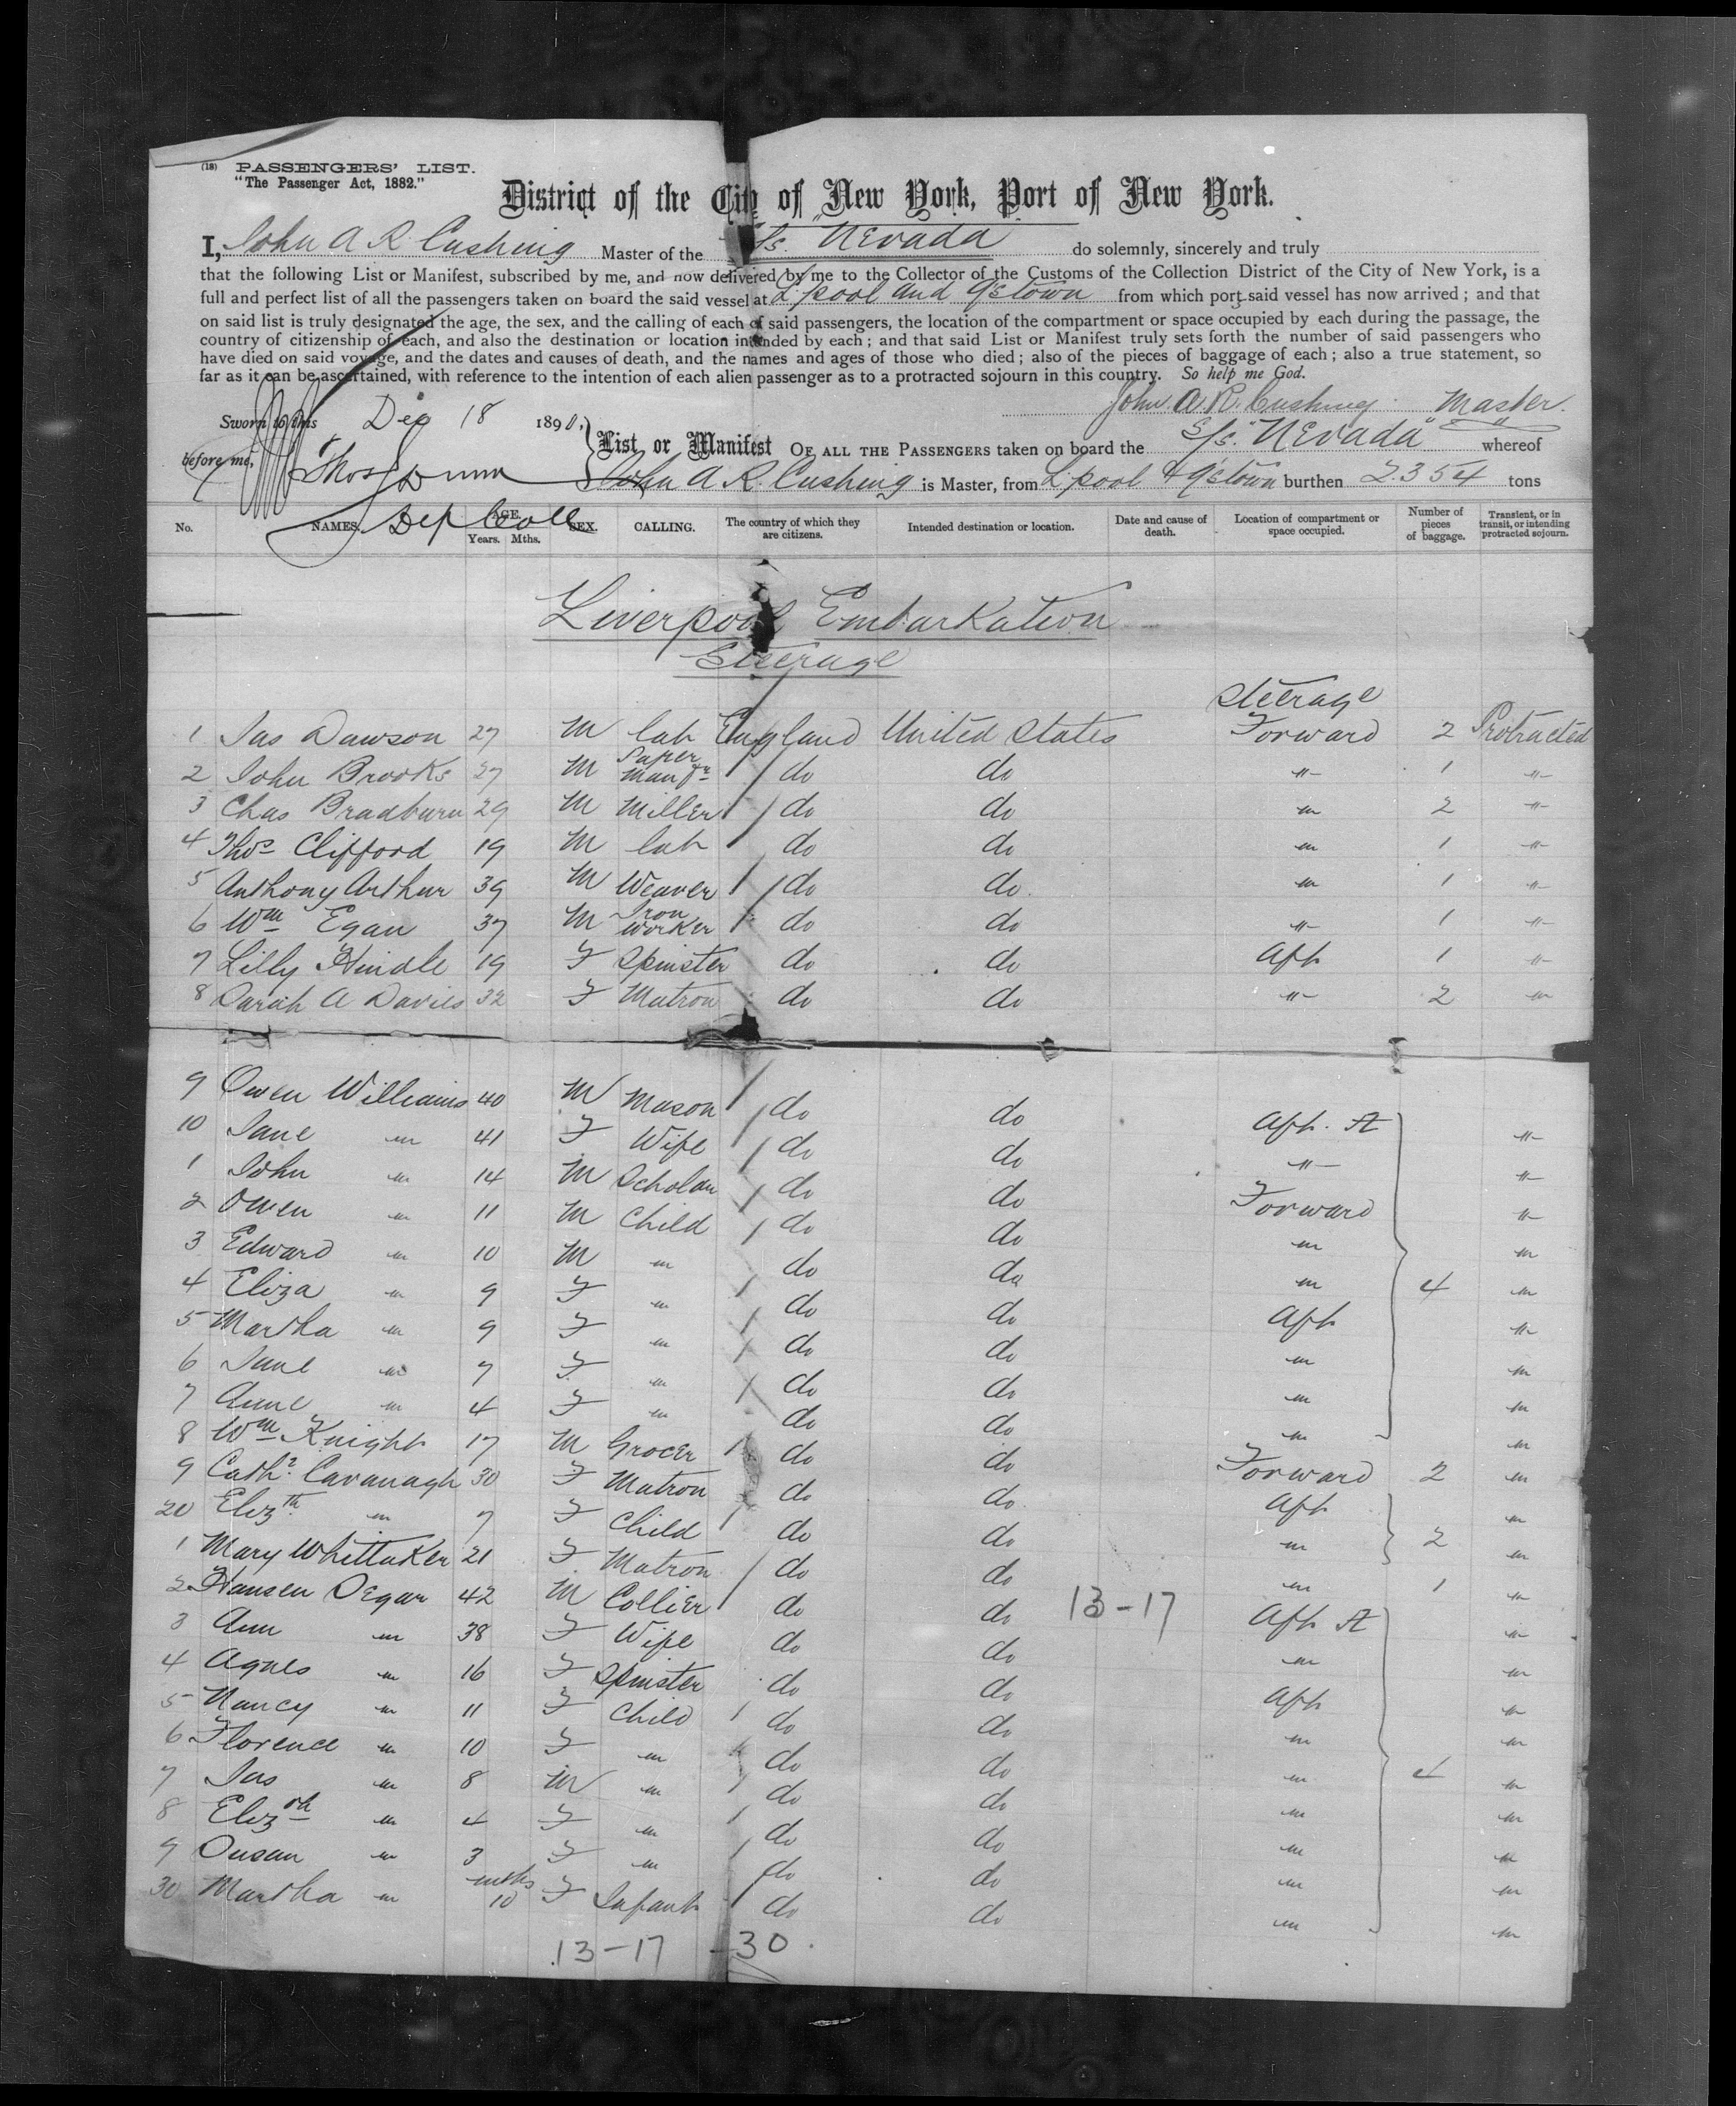 (18) PASSENGERS' LIST.
"The Passenger Act, 1882."
District of the City of New York, Port of New York.
I, John A R Cushing Master of the S/s. "Nevada do solemnly, sincerely and truly
that the following List or Manifest, subscribed by me, and now delivered by me to the Collector of the Customs of the Collection District of the City of New York, is a
full and perfect list of all the passengers taken on board the said vessel at L'pool and Q'stown from which port said vessel has now arrived; and that
on said list is truly designated the age, the sex, and the calling of each of said passengers, the location of the compartment or space occupied by each during the passage, the
country of citizenship of each, and also the destination or location intended by each; and that said List or Manifest truly sets forth the number of said passengers who
have died on said voyage, and the dates and causes of death, and the names and ages of those who died; also of the pieces of baggage of each; also a true statement, so
far as it can be ascertained, with reference to the intention of each alien passenger as to a protracted sojourn in this country. So help me God.
John A. R. Cushing Master.
Sworn to this Dec 18 1890,
List or Manifest OF ALL THE PASSENGERS taken on board the S/s. "Nevada" whereof
before me, Thos Dunn
John A R. Cushing is Master, from L'pool & Q'stown burthen 2354 tons
Dep Coll
No. NAMES. AGE. Years. Mths. SEX. CALLING. The country of which they are citizens. Intended destination or location. Date and cause of death. Location of compartment or space occupied. Number of pieces of baggage. Transient, or in transit, or intending protracted sojourn.
Liverpool Embarkation
Steerage
Steerage
1 Jas Dawson 27 M lab England United States Forward 2 Protracted
2 John Brooks 27 M Paper Manfr do do " 1 "
3 Chas Bradburn 29 M Miller do do " 2 "
4 Thos Clifford 19 M lab do do " 1 "
5 Anthony Arthur 39 M Weaver do do " 1 "
6 Wm Egan 37 M Iron Worker do do " 1 "
7 Lilly Hindle 19 F Spinster do do Aft 1 "
8 Sarah A Davies 32 F Matron do do " 2 "
9 Owen Williams 40 M Mason do do Aft. St "
10 Jane " 41 F Wife do do " "
1 John " 14 M Scholar do do Forward "
2 Owen " 11 M Child do do " "
3 Edward " 10 M " do do " 4 "
4 Eliza " 9 F " do do Aft "
5 Martha " 9 F " do do " "
6 Jane " 7 F " do do " "
7 Anne " 4 F " do do " "
8 Wm Knight 17 M Grocer do do Forward 2 "
9 Cathe Cavanagh 30 F Matron do do Aft "
20 Elizth " 7 F Child do do " 2 "
1 Mary Whittaker 21 F Matron do do " 1 "
2 Hansen Degar 42 M Collier do do 13-17 Aft St "
3 Ann " 38 F Wife do do " "
4 Agnes " 16 F Spinster do do Aft "
5 Nancy " 11 F Child do do " "
6 Florence " 10 F " do do " 4 "
7 Jas " 8 M " do do " "
8 Elizth " 4 F " do do " "
9 Susan " 3 F " do do " "
30 Martha " mths 10 F Infant do do " "
13-17 - 30